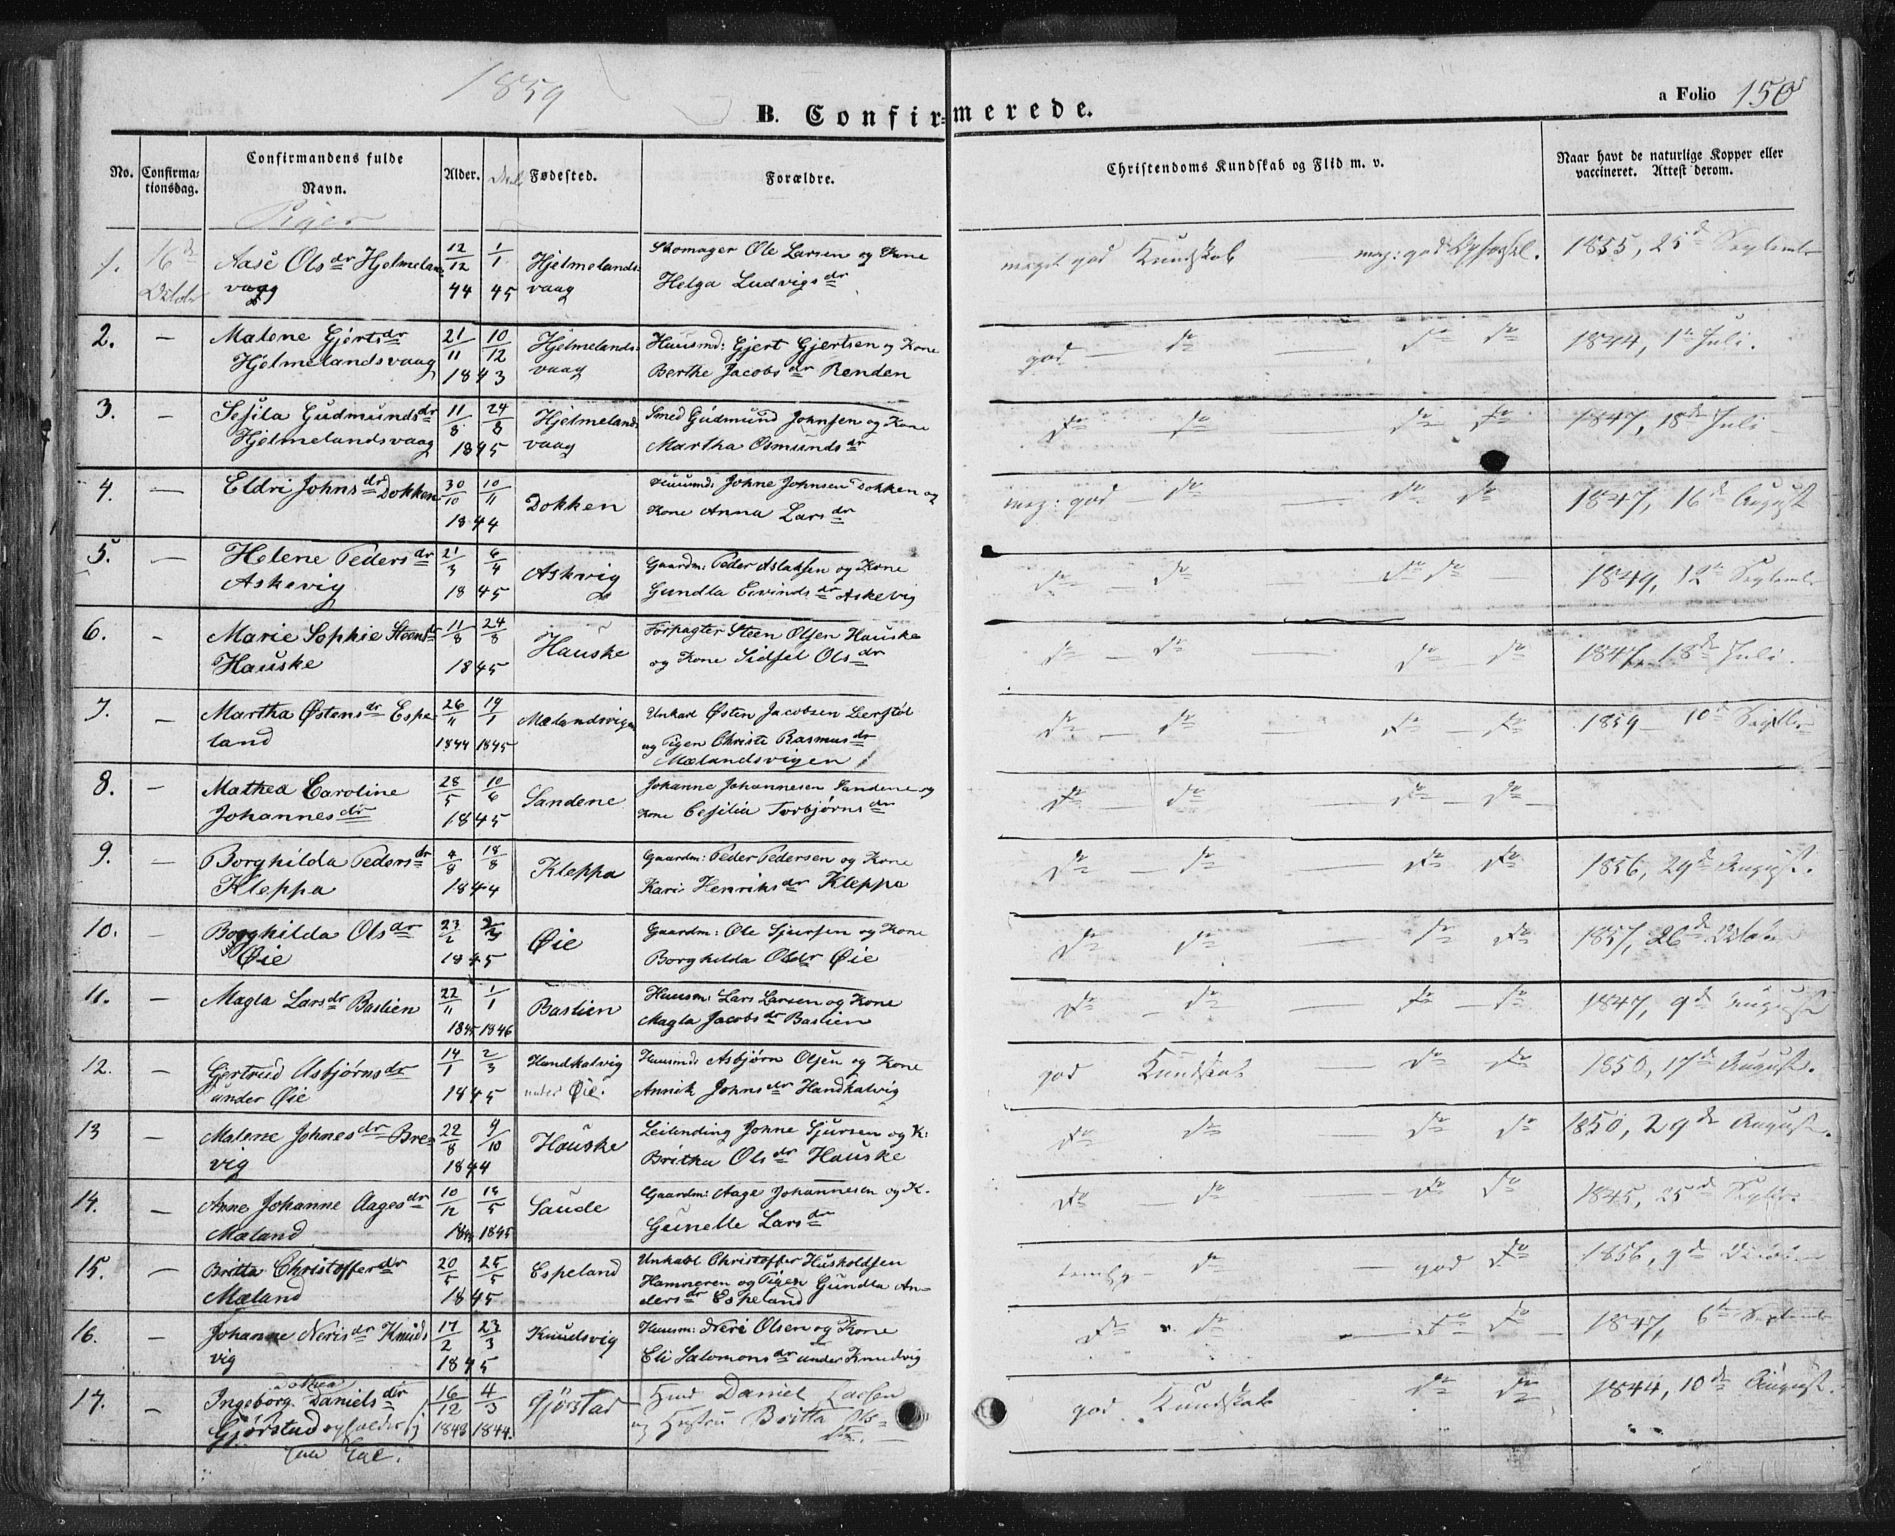 1859
a Folio 150
B. Confirmerede.
No. Confirmationsdag. Confirmandens fulde Navn. Alder. Fødested. Forældre. Christendoms Kundskab og Flid m. v. Naar havt de naturlige Kopper eller vaccineret. Attest derom.
Piger
1. 16d Aase Olsdr Hjelmelandsvaag 12/12 44 1/1 45 Hjelmelandsvaag Skomager Ole Larsen og Kone
Helga Ludvigsdr meget god Kundskab meg: god 1855, 25d September
2. — Malene Gjertsdr 21/11 10/12 Hjelmelands- Huusmd: Gjert Gjertsen og Kone
Hjelmelandsvaag 1843 vaag Berthe Jacobsdr Renden god — do — do do 1844, 1te Juli.
3. — Sesila Gudmundsdr 11/8 24/8 Hjelmelands- Smed Gudmund Johnsen og Kone
Hjelmelandsvaag 1845 vaag Martha Osmundsdr do do do do 1847, 18de Juli
4. — Eldri Johnsdr Dokken 30/10 10/11 Dokken Huusmd: Johne Johnsen Dokken og
1844 Kone Anna Larsdr meg: god do — do do 1847, 16d August
5. — Helene Pedersdr 21/3 6/4 Askvig Gaardm: Peder Aslaksen og Kone
Askevig 1845 Gundla Eivindsdr Askevig do — do do do — 1849, 12te September
6. — Marie Sophie Steensdr 11/8 24/8 Hauske Forpagter Steen Olsen Hauske
Hauske 1845 og Kone Sidsel Olsdr do — do — do — do 1847, 18de Juli.
7. — Martha Østensdr Espe- 26/11 19/1 Mælandsvigen Unkarl Østen Jacobsen Leerstøl
land 1844 1845 og Pigen Christi Rasmusdr
Mælandsvigen do — do — do — do 1859 — 10d Septbr
8. — Mathea Caroline 28/5 10/6 Sandene Johanne Johannesen Sandene og
Johannesdr 1845 Kone Cesilia Torbjørnsdr do — do — do — do —
9. — Borghilda Pedersdr 4/8 18/8 Kleppa Gaardm: Peder Pedersen og Kone
Kleppa 1844 Kari Henriksdr Kleppa do — do — do do 1856, 29d August.
10. — Borghilda Olsdr 23/2 Øie Gaardm: Ole Sjursen og Kone
Øie 1845 Borghilda Olsdr Øie do — do — do do 1857, 26d
11. — Magla Larsdr Bastien 22/11 1/1 Bastien Huusm: Lars Larsen og Kone
1845 1846 Magla Jacobsdr Bastien do — do — do do 1847, 9d August
12. — Gertrud Asbjørnsdr 14/1 2/3 Handkalvig Huusmd: Asbjørn Olsen og Kone
under Øie 1845 under Øie. Annik Johnsdr Handkalvig god Kundskab — do do 1850, 17de August.
13 — Malene Johnesdr Bre- 22/8 9/10 Hauske Leilending Johne Sjursen og K:
vig 1844 Britha Olsdr Hauske do do — do do 1850, 29de August.
14. — Anne Johanne Aagesdr 10/12 Saude Gaardm: Aage Johannesen og K.
Mæland 1844 1845 Gunelle Larsdr do — do — do do 1845, 25d Septbr.
15. — Britta Christofferdr 20/5 25/5 Espeland Unkarl Christoffer Husholdsen
Mæland 1845 Hamneren og Pigen Gundla An-
dersdr Espeland temlig — do — god do 1856, 9d
16. — Johanne Nerisdr Knuds- 17/2 23/3 Knudsvig Huusm: Neri Olsen og Kone
vig 1845 Eli Salomonsdr under Knudvig do do — do do — 1847, 6te September
17. — Ingeborg Dothea Danielsdr 16/12 4/3 Gjørstad Daniel Larsen
Gjørstad 1843 1844. og Britta Ols-
dr. god Kundskab do do 1844, 10de August.